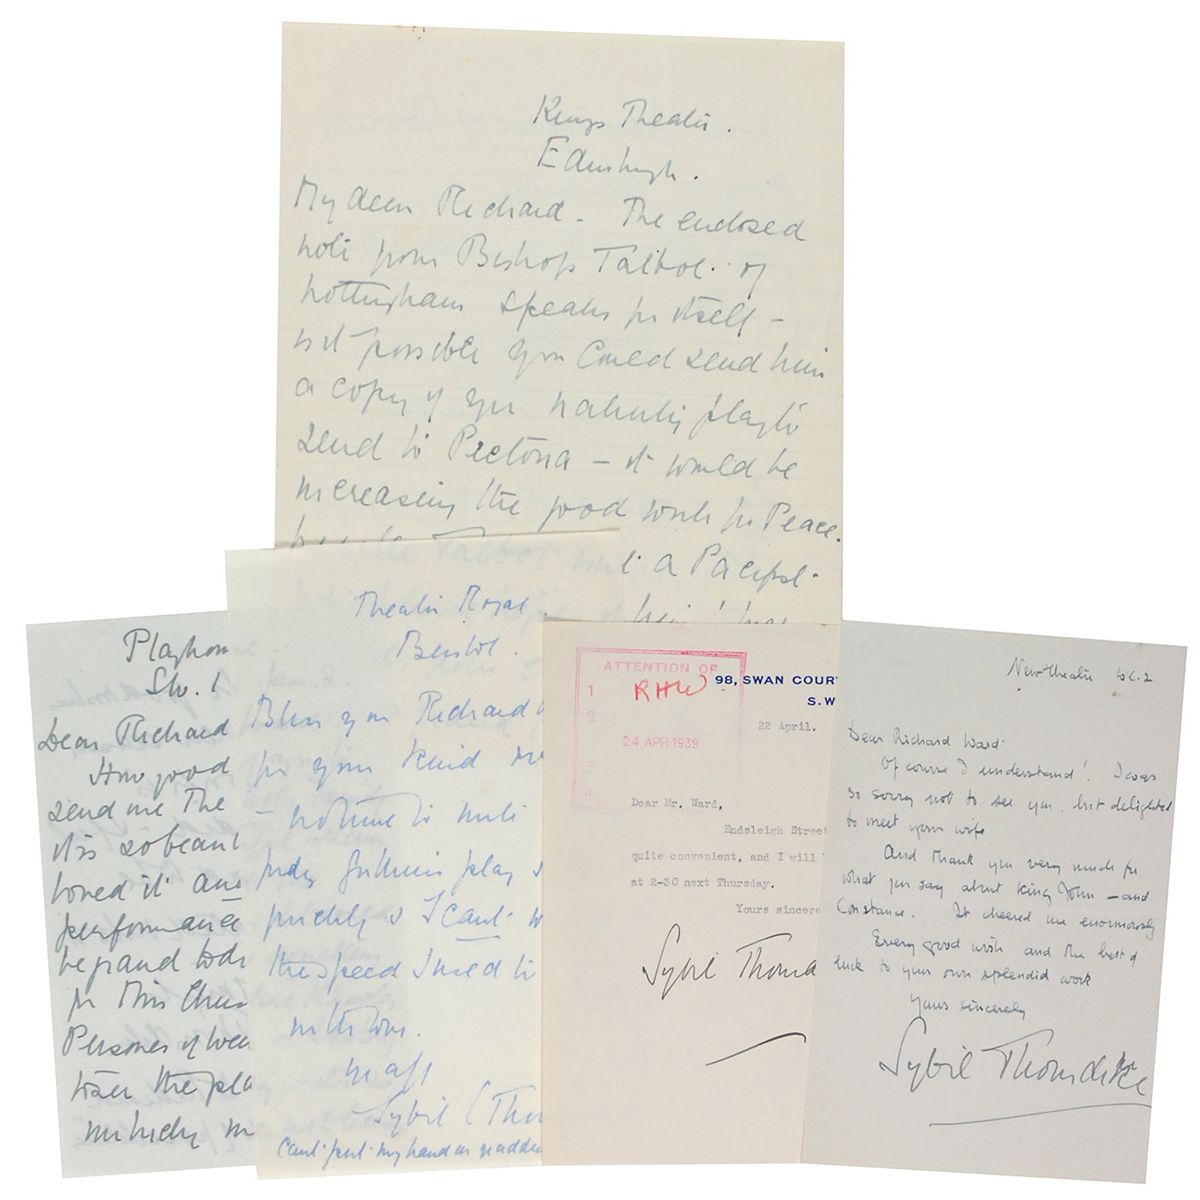 Kings Theatre.
Edinburgh.
My dear Richard - The enclosed
note from Bishop Talbot of
Nottingham speaks for itself -
is it possible you could send him
a copy of your nativity play to
send to Pretoria - it would be
increasing the good work for Peace.
Talbot a Pacifist.
Playhou
Dear Richard
How good
send me The
it is so beaut
loved it and
performance
be grand
for Miss Chur
Persones of
the pla
Theatre Royal.
Bristol.
Bless you Richard
for your kind
- no time to write
play
& I can't
the speed I used to
Sybil (Thor
Can't put my hand on address
ATTENTION OF
1 RHW
2
24 APR 1939
3
4
98, SWAN COUR
S.W
22 April.
Dear Mr. Ward,
Endsleigh Street
quite convenient, and I will
at 2-30 next Thursday.
Yours sincere
Sybil Thornd
New Theatre W.C.2
Dear Richard Ward
Of course I understand! I was
so sorry not to see you, but delighted
to meet your wife
And thank you very much for
what you say about King John - and
Constance. It cheered me enormously
Every good wish and the best of
luck to your own splendid work
Yours sincerely
Sybil Thorndike